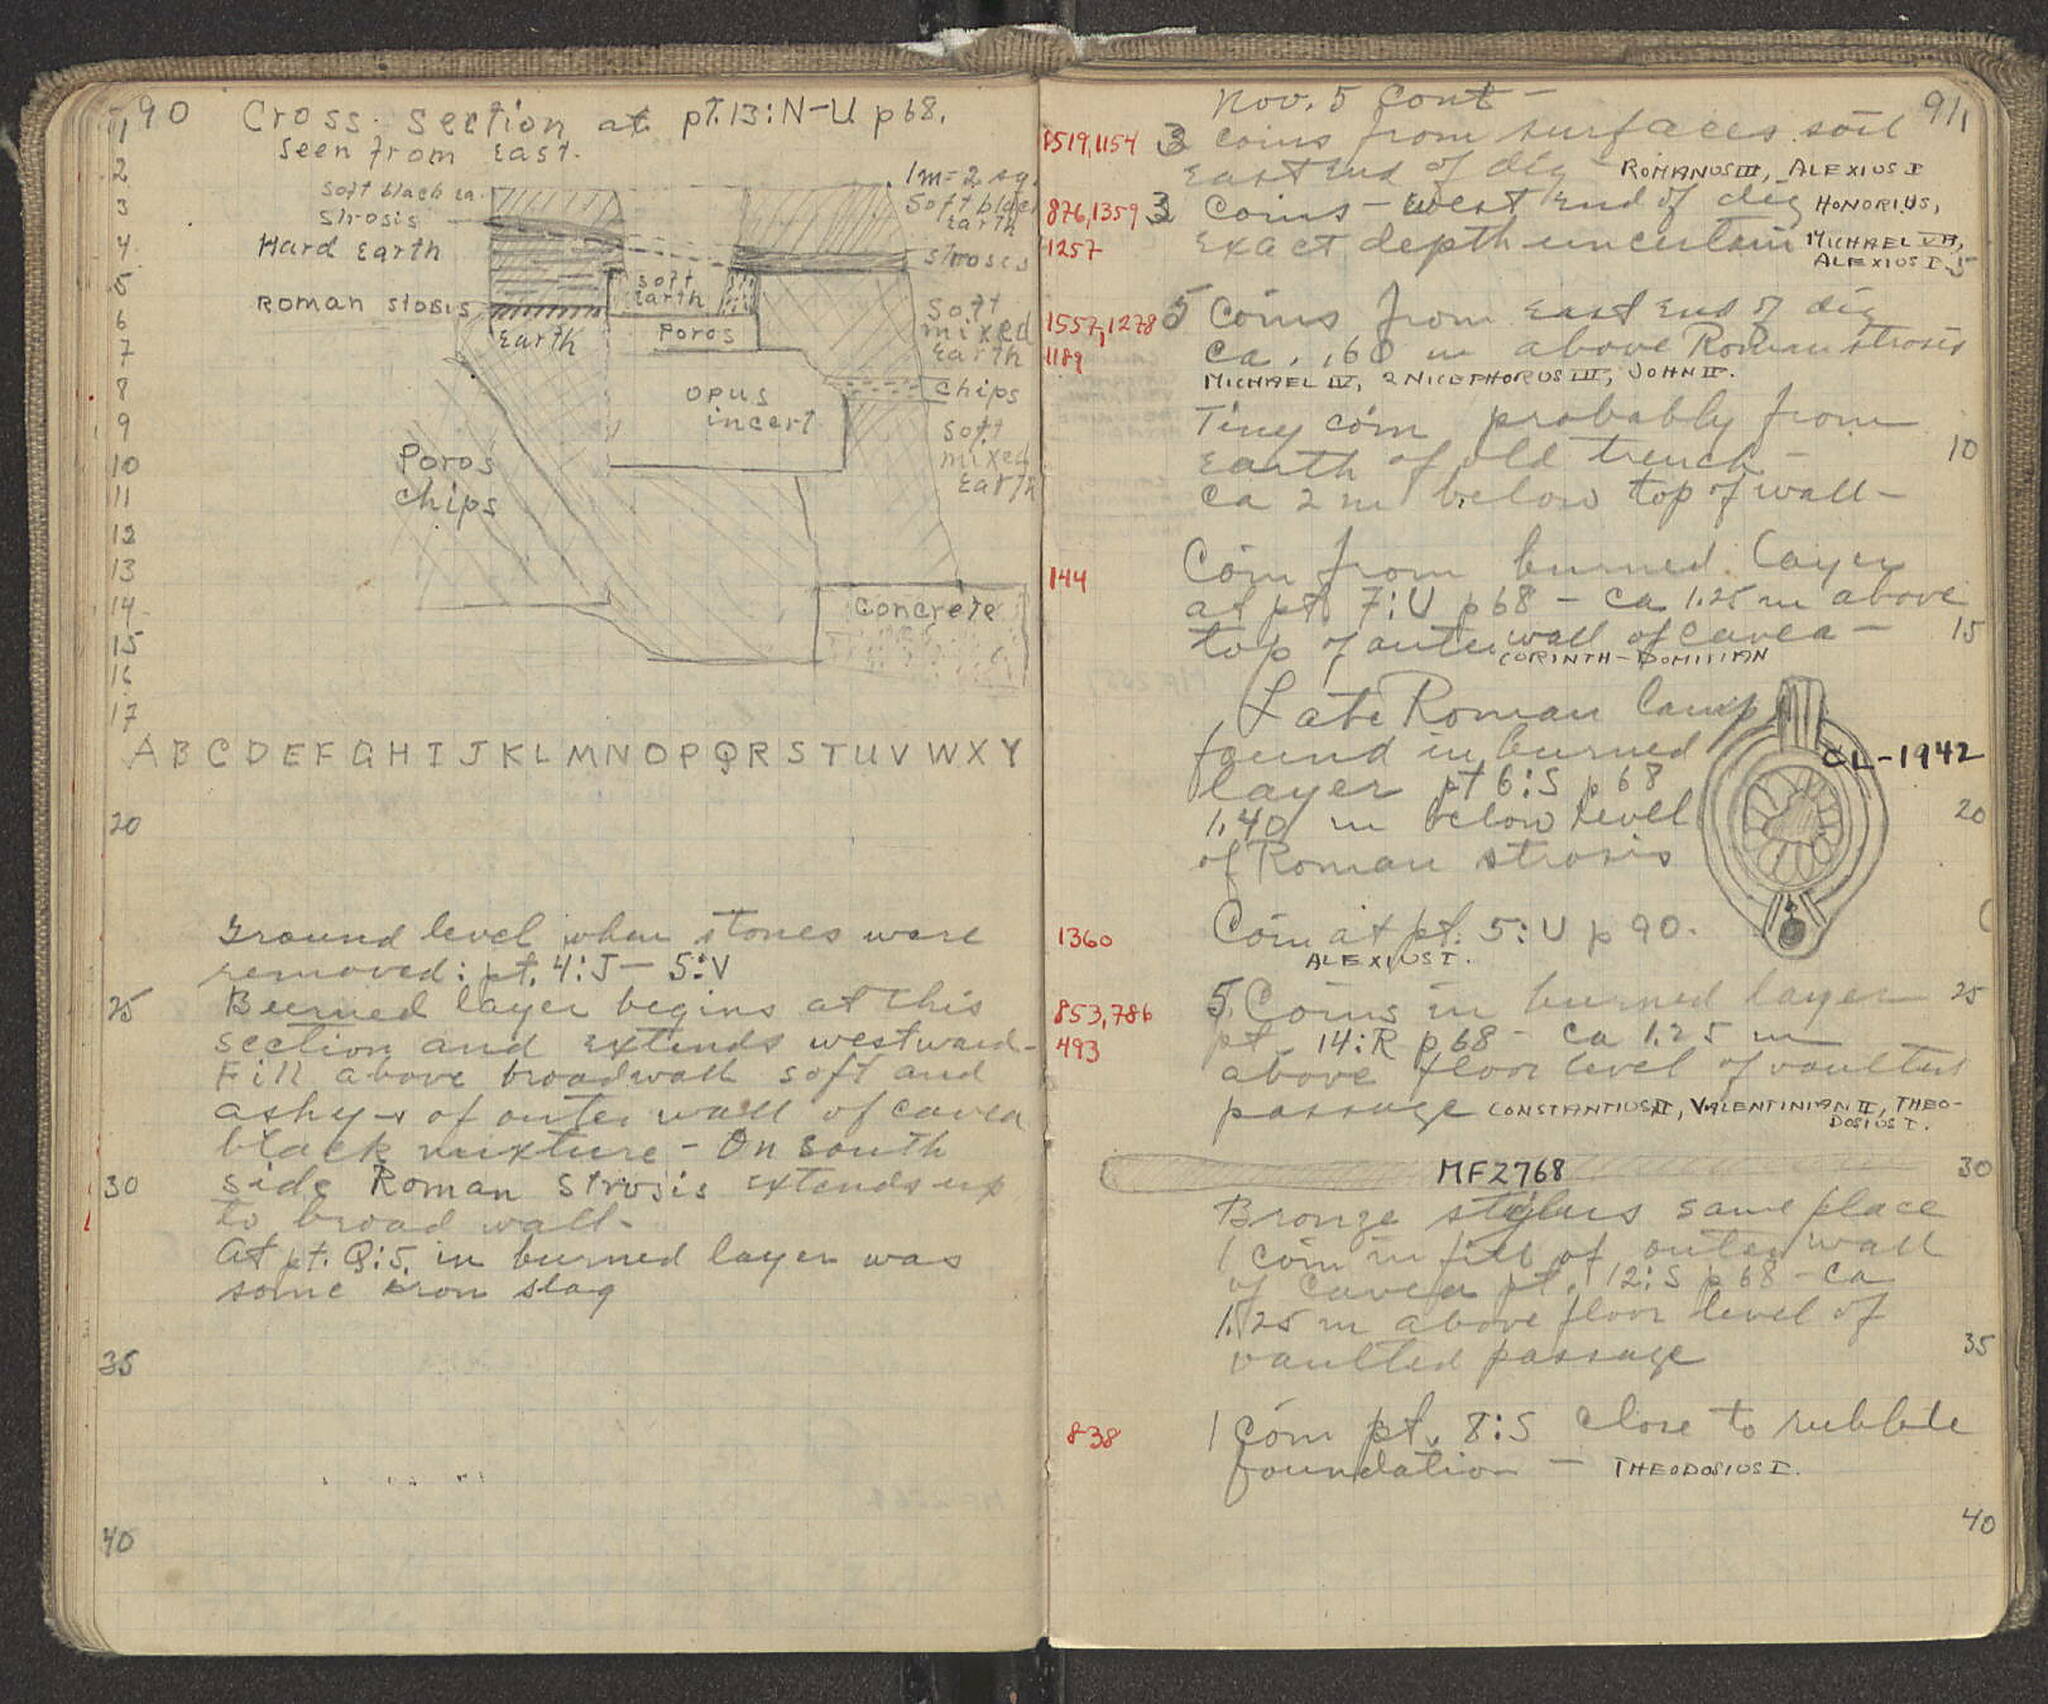 90 Cross section at pt. 13:N-U p68.
Seen from East.
1m = 2 sq.
Soft black ea.
Strosis
Hard Earth
Roman stosis
Earth
soft
Earth
Poros
opus
incert
Poros
chips
Soft black
Earth
stroses
Soft
mixed
Earth
chips
Soft
mixed
Earth
Concrete
1
2
3
4
5
6
7
8
9
10
11
12
13
14
15
16
17
A B C D E F G H I J K L M N O P Q R S T U V W X Y
20
Ground level when stones were
removed: pt. 4:J — 5:V
25 Burned layer begins at this
section and extends westward-
Fill above broadwall soft and
ashy - of outer wall of cavea
black mixture - On south
30 side Roman Strosis extends up
to broad wall-
At pt. Q:5. in burned layer was
some iron slag
35
40
Nov. 5 Cont - 91
1519,1154 3 coins from surfaces soil
East End of dig - ROMANUS III, ALEXIUS I
876,1359 3 Coins - west end of dig HONORIUS,
1257 Exact depth uncertain MICHAEL VII,
ALEXIUS I 5
1557,1278 5 Coins from East End of dig
1189 ca. .60 m above Roman strosis
MICHAEL IV, 2 NICEPHORUS III, JOHN II.
Tiny coin probably from
Earth of old trench - 10
ca 2 m below top of wall -
144 Coin from burned layer
at pt. 7:U p68 - ca 1.25 m above
top of outer wall of cavea - 15
CORINTH - DOMITIAN
Late Roman lamp
found in burned CL-1942
layer pt 6:S p 68
1.40 m below level 20
of Roman strosis
1360 Coin at pt. 5:U p 90.
ALEXIUS I.
853,786 5 Coins in burned layer 25
493 pt. 14:R p68 - ca 1.25 m
above floor level of vaulted
passage CONSTANTIUS II, VALENTINIAN II, THEO-
DOSIUS I.
MF2768 30
Bronze stylus same place
1 coin in fill of outer wall
of cavea pt. 12:S p68 - ca
1.25 m above floor level of
vaulted passage 35
838 1 coin pt. 8:S close to rubble
foundation - THEODOSIUS I.
40